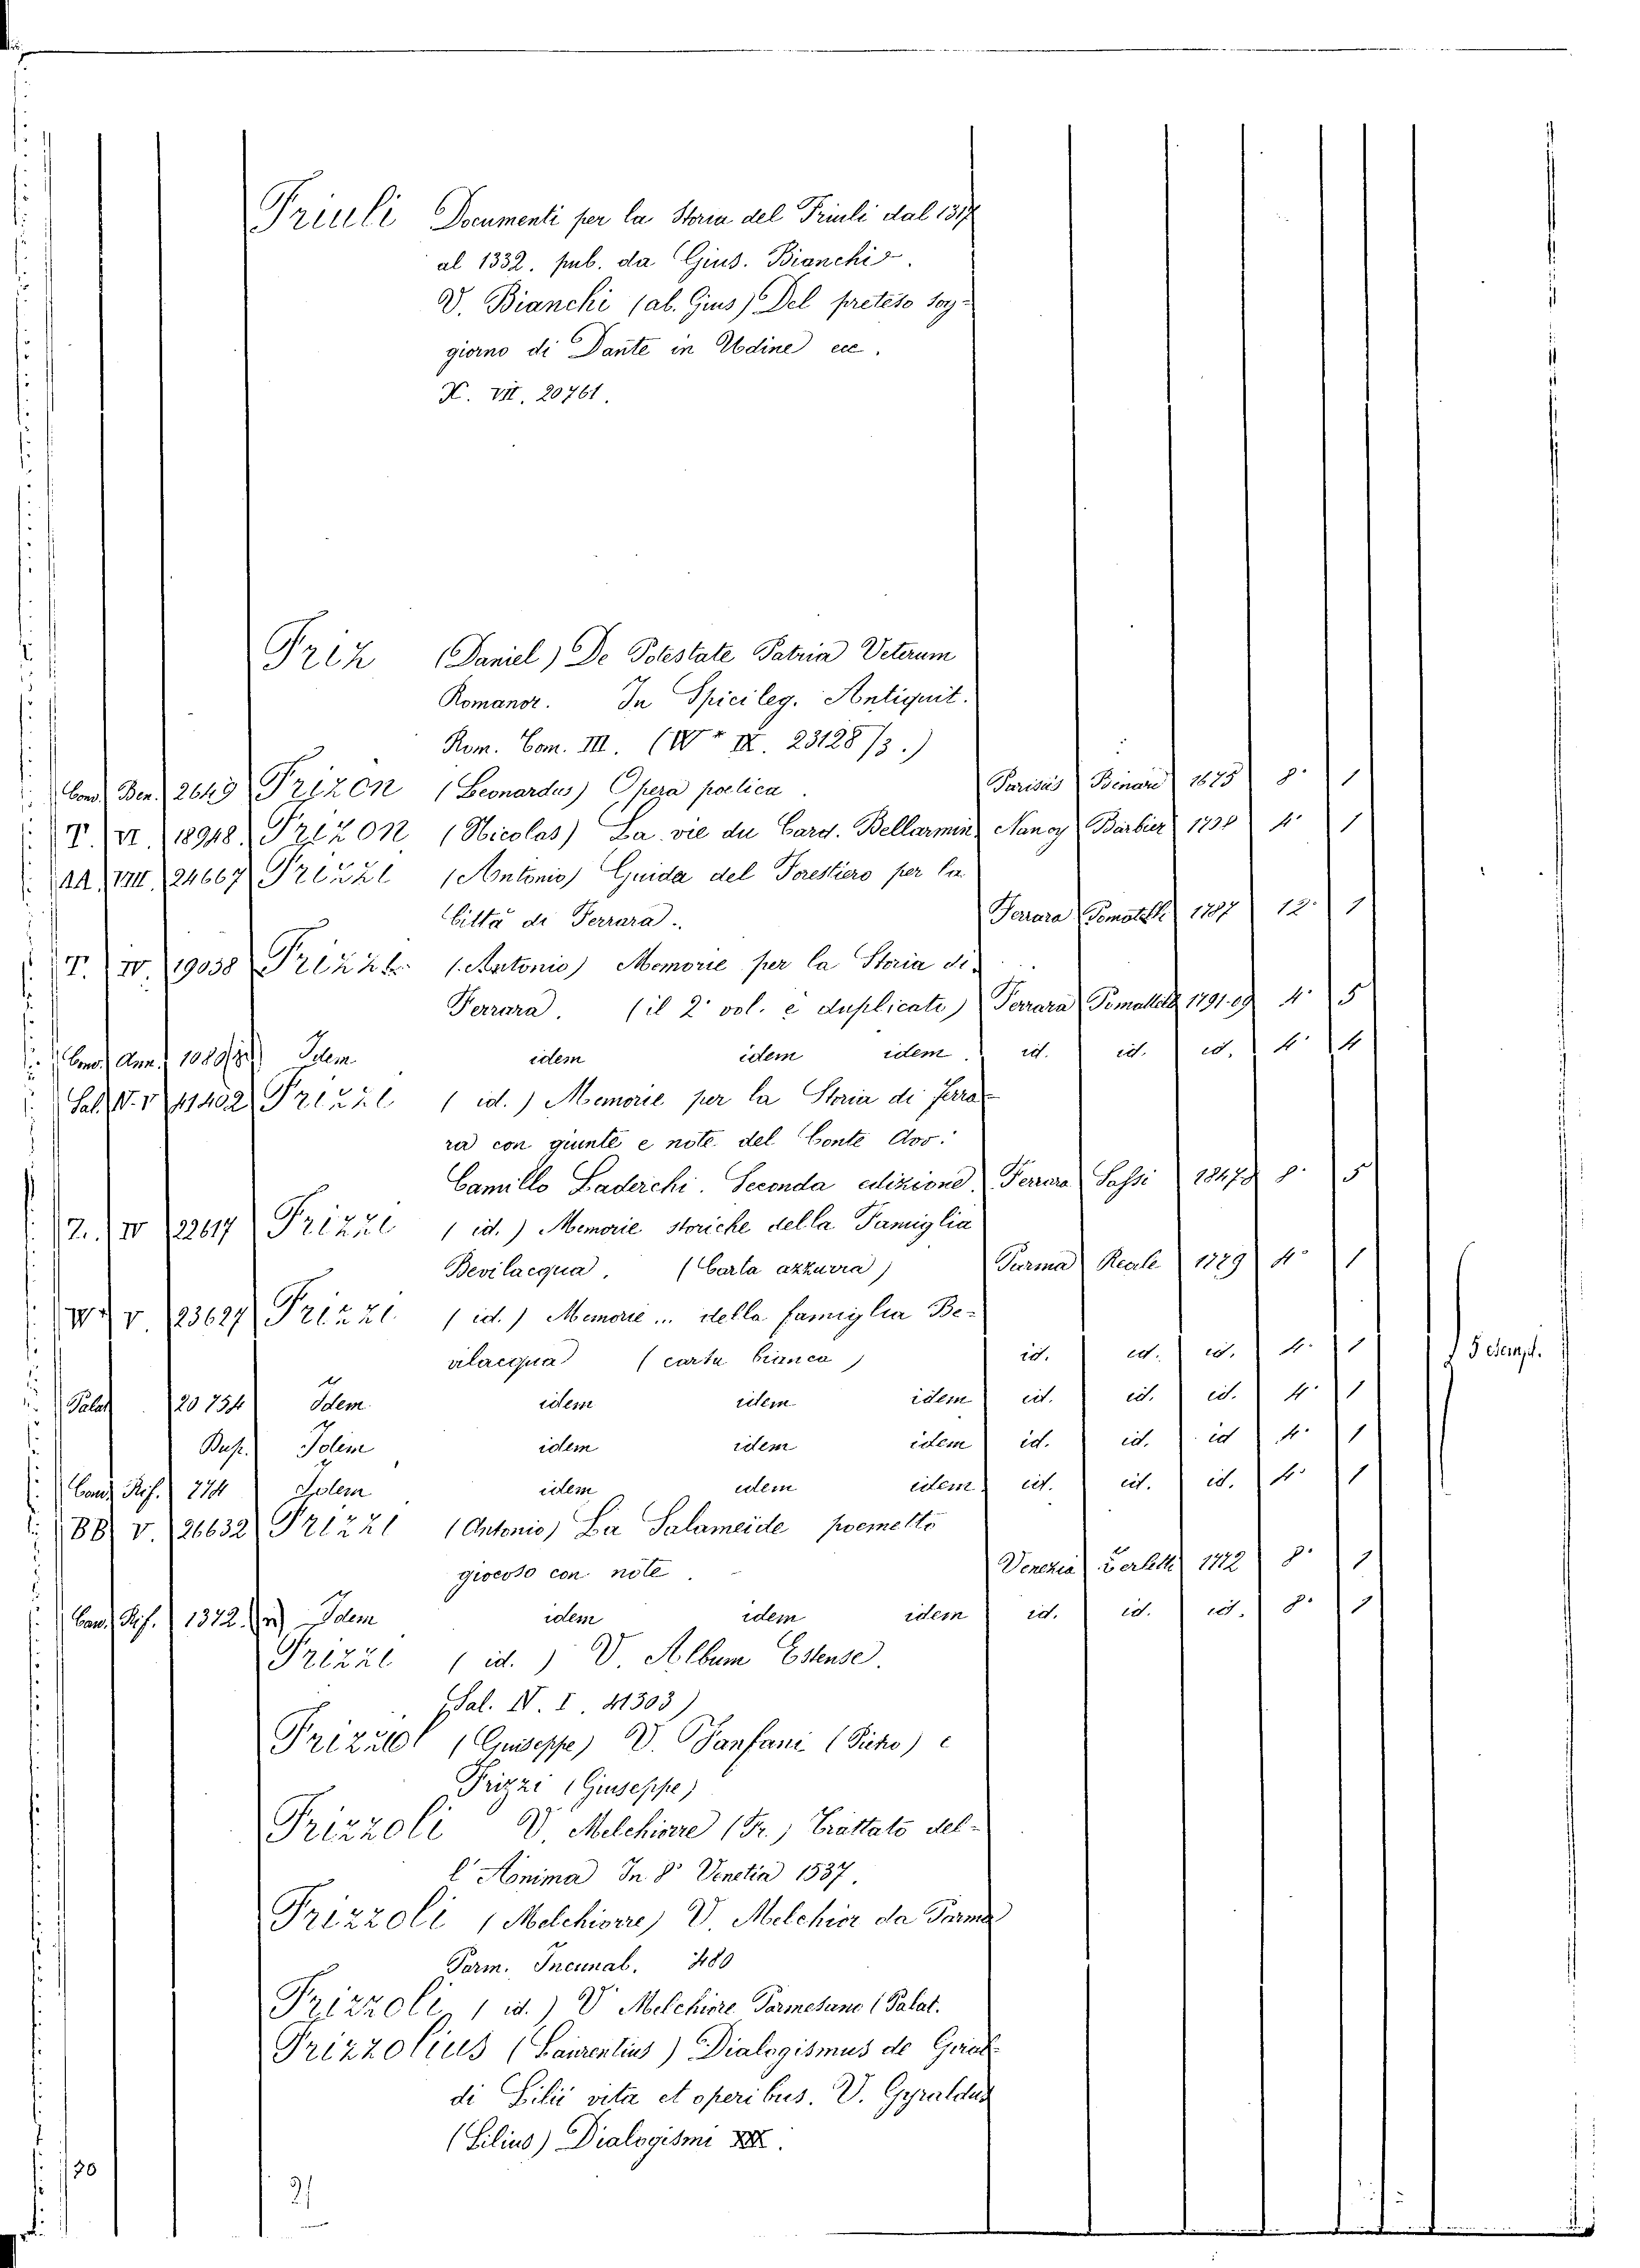 Friuli Documenti per la Storia del Friuli dal 1317
al 1332. pub. da Gius. Bianchi.
V. Bianchi (ab. Gius) Del preteso sog-
giorno di Dante in Udine ecc.
X. VII. 20761.
Friz (Daniel) De Potestate Patria Veterum
Romanor. In Spicileg. Antiquit.
Rom. Com. III. (W* IX. 23128/3.)
Cand. Ben. 2649 Frizon (Leonardus) Opera poetica. Parisiis Benard 1675 8° 1
T. VI. 18948. Frizon (Nicolas) La vie du Card. Bellarmin Nancy Barbier 1708 4° 1
AA. VIII. 24667 Frizzi (Antonio) Guida del Forestiero per la
Città di Ferrara. Ferrara Pomatelli 1787 12° 1
T. IV. 19038 Frizzi (Antonio) Memorie per la Storia di
Ferrara. (il 2° vol. è duplicato) Ferrara Pomatelli 1791-09 4° 5
Cand. Ann. 1089 Idem idem idem idem id. id. id. 4° 4
Sal. V. V 41402 Frizzi (id.) Memorie per la Storia di Ferra-
ra con giunte e note del Conte Avv.
Camillo Laderchi. Seconda edizione. Ferrara Sassi 1847 8° 5
Z. IV 22617 Frizzi (id.) Memorie storiche della Famiglia
Bevilacqua. (Carta azzurra) Parma Reale 1779 4° 1
V. 23627 Frizzi (id.) Memorie... della famiglia Be-
vilacqua (carta bianca) id. id. id. 4° 1 5 esempl.
Palat 20754 Idem idem idem idem id. id. id. 4° 1
Busp. Idem idem idem idem id. id. id 4° 1
Cand. Rif. 774 Idem idem idem idem id. id. id. 4° 1
BB V. 26632 Frizzi (Antonio) La Salameide poemetto
giocoso con note. Venezia Zerletti 1772 8° 1
Cand. Rif. 1372. Idem idem idem idem id. id. id. 8° 1
Frizzi (id.) V. Album Estense.
(Sal. N. I. 41303)
Frizzi (Giuseppe) V. Fanfani (Pietro) e
Frizzi (Giuseppe)
Frizzoli V. Melchiorre (Fr.) Trattato del-
l'Anima In 8° Venetia 1537.
Frizzoli (Melchiorre) V. Melchior da Parma
Parm. Incunab. 480
Frizzoli (id.) V. Melchiore Parmesano (Palat.
Frizzolius (Laurentius) Dialogismus de Giral-
di Lilii vita et operibus. V. Gyraldus
(Lilius) Dialogismi XXX.
120
21